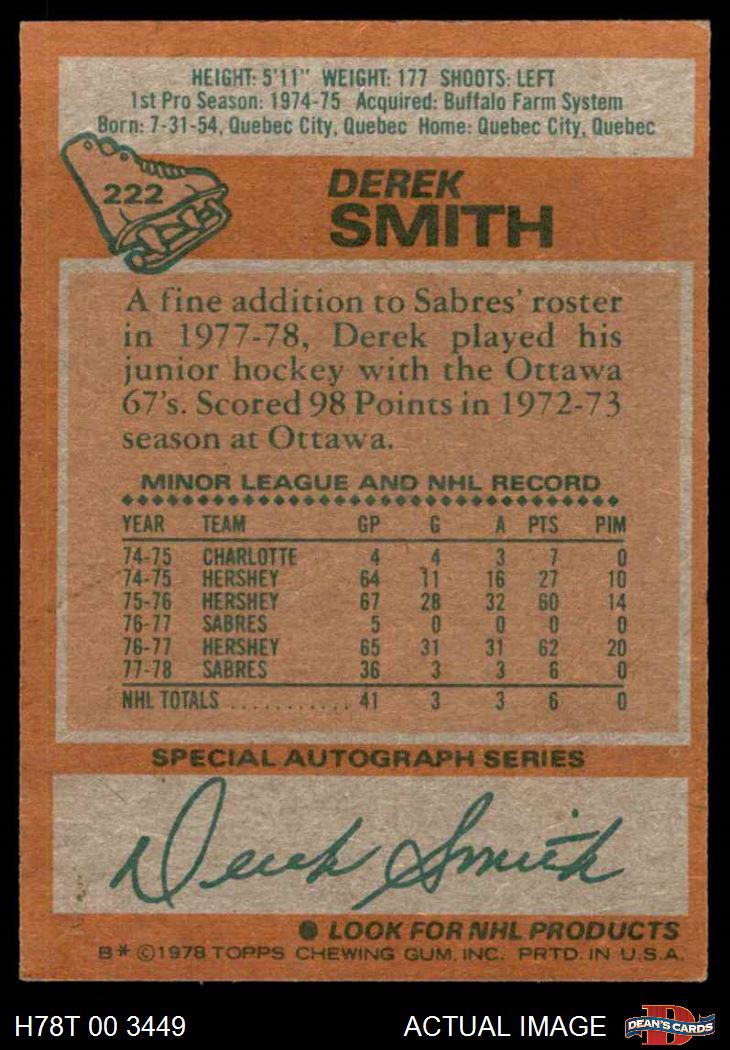 HEIGHT: 5'11" WEIGHT: 177 SHOOTS: LEFT
1st Pro Season: 1974-75 Acquired: Buffalo Farm System
Born: 7-31-54, Quebec City, Quebec Home: Quebec City, Quebec
222
DEREK
SMITH
A fine addition to Sabres' roster
in 1977-78, Derek played his
junior hockey with the Ottawa
67's. Scored 98 Points in 1972-73
season at Ottawa.
MINOR LEAGUE AND NHL RECORD
YEAR TEAM GP G A PTS PIM
74-75 CHARLOTTE 4 4 3 7 0
74-75 HERSHEY 64 11 16 27 10
75-76 HERSHEY 67 28 32 60 14
76-77 SABRES 5 0 0 0 0
76-77 HERSHEY 65 31 31 62 20
77-78 SABRES 36 3 3 6 0
NHL TOTALS ........... 41 3 3 6 0
SPECIAL AUTOGRAPH SERIES
Derek Smith
● LOOK FOR NHL PRODUCTS
B* ©1978 TOPPS CHEWING GUM, INC. PRTD. IN U.S.A.
H78T 00 3449 ACTUAL IMAGE D DEAN'S CARDS